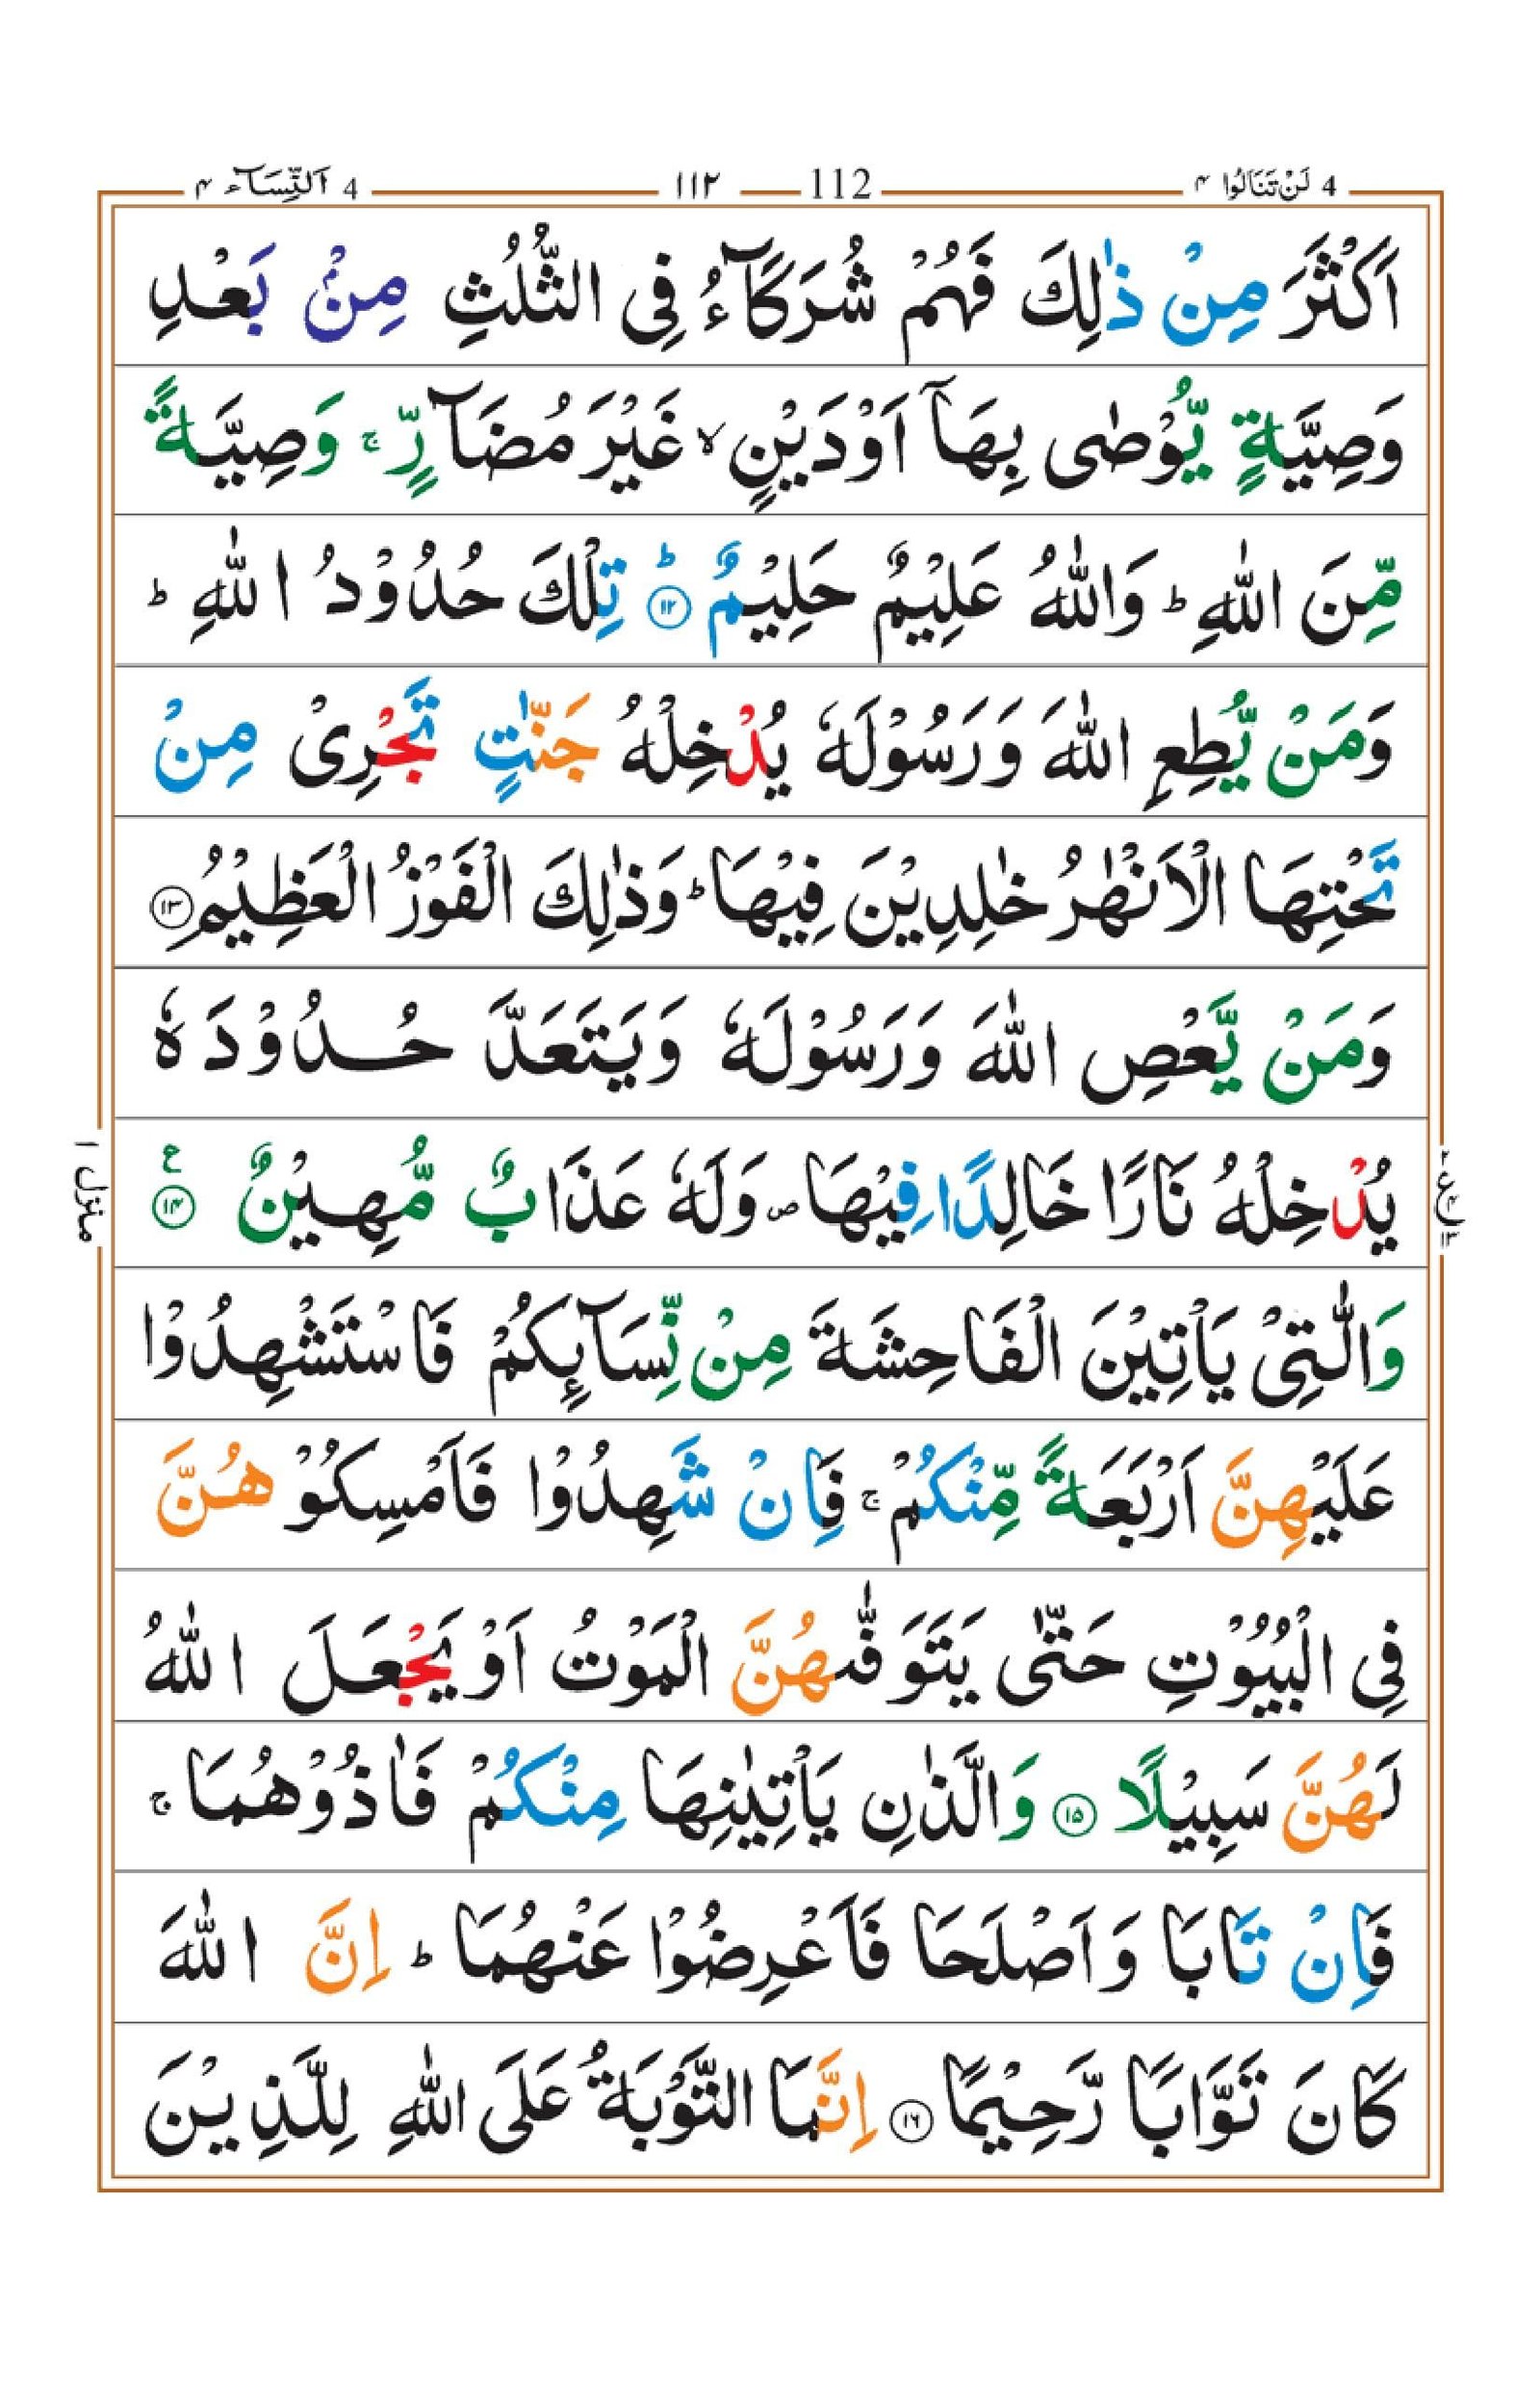 4 لَنْ تَنَالُوا ۴
112 ١١٢
4 اَلنِّسَآء ۴
اَكْثَرَ مِنْ ذٰلِكَ فَهُمْ شُرَكَآءُ فِی الثُّلُثِ مِنْۢ بَعْدِ
وَصِیَّةٍ یُّوْصٰی بِهَاۤ اَوْ دَیْنٍ ۙ غَیْرَ مُضَآرٍّ ۚ وَصِیَّةً
مِّنَ اللّٰهِ ؕ وَاللّٰهُ عَلِیْمٌ حَلِیْمٌ ؕ ﴿۱۲﴾ تِلْكَ حُدُوْدُ اللّٰهِ ؕ
وَمَنْ یُّطِعِ اللّٰهَ وَرَسُوْلَهٗ یُدْخِلْهُ جَنّٰتٍ تَجْرِیْ مِنْ
تَحْتِهَا الْاَنْهٰرُ خٰلِدِیْنَ فِیْهَا ؕ وَذٰلِكَ الْفَوْزُ الْعَظِیْمُ ﴿۱۳﴾
وَمَنْ یَّعْصِ اللّٰهَ وَرَسُوْلَهٗ وَیَتَعَدَّ حُدُوْدَهٗ
یُدْخِلْهُ نَارًا خَالِدًا فِیْهَا ۪ وَلَهٗ عَذَابٌ مُّهِیْنٌ ﴿۱۴﴾ ع
وَالّٰتِیْ یَاْتِیْنَ الْفَاحِشَةَ مِنْ نِّسَآئِكُمْ فَاسْتَشْهِدُوْا
عَلَیْهِنَّ اَرْبَعَةً مِّنْكُمْ ۚ فَاِنْ شَهِدُوْا فَاَمْسِكُوْهُنَّ
فِی الْبُیُوْتِ حَتّٰی یَتَوَفّٰىهُنَّ الْمَوْتُ اَوْ یَجْعَلَ اللّٰهُ
لَهُنَّ سَبِیْلًا ﴿۱۵﴾ وَالَّذٰنِ یَاْتِیٰنِهَا مِنْكُمْ فَاٰذُوْهُمَا ۚ
فَاِنْ تَابَا وَاَصْلَحَا فَاَعْرِضُوْا عَنْهُمَا ؕ اِنَّ اللّٰهَ
كَانَ تَوَّابًا رَّحِیْمًا ﴿۱۶﴾ اِنَّمَا التَّوْبَةُ عَلَی اللّٰهِ لِلَّذِیْنَ
منزل ۱